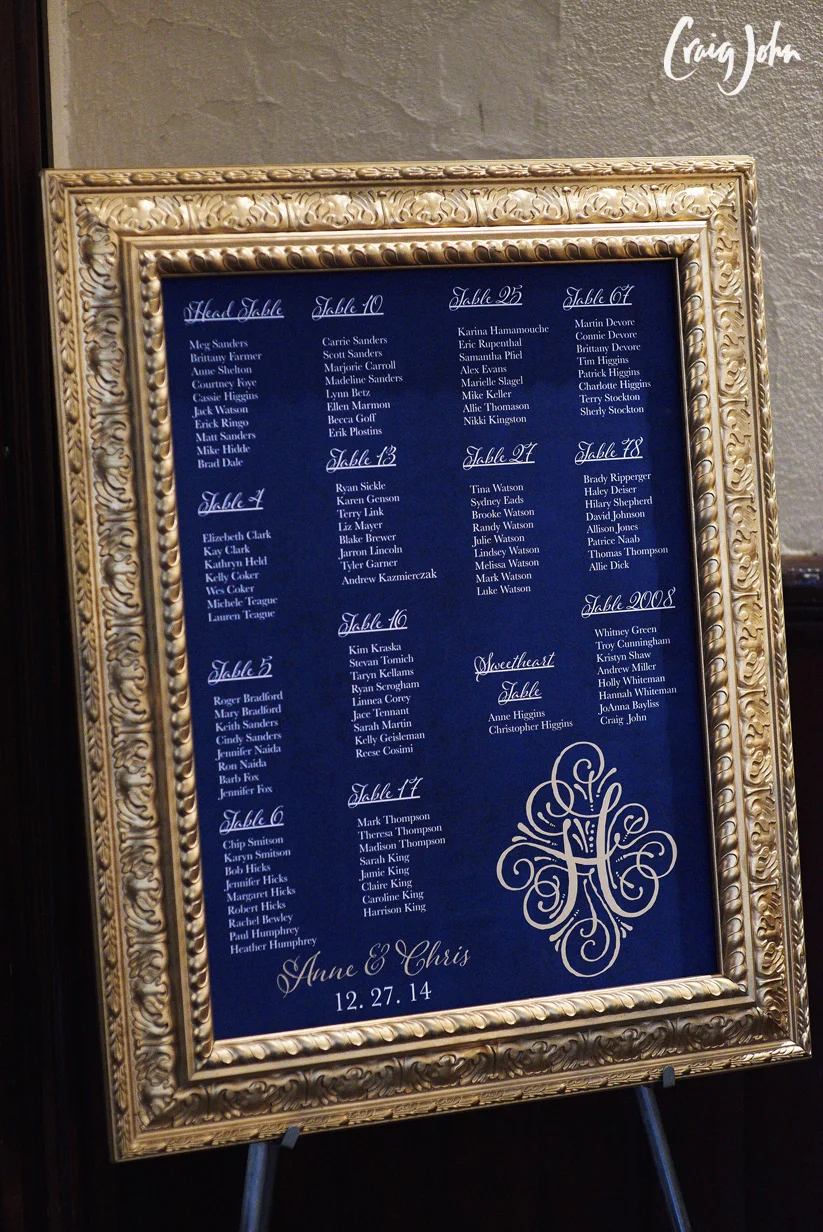 Craig John
Head Table
Meg Sanders
Brittany Farmer
Anne Shelton
Courtney Foye
Cassie Higgins
Jack Watson
Erick Ringo
Matt Sanders
Mike Hidde
Brad Dale
Table 4
Elizebeth Clark
Kay Clark
Kathryn Held
Kelly Coker
Wes Coker
Michele Teague
Lauren Teague
Table 5
Roger Bradford
Mary Bradford
Keith Sanders
Cindy Sanders
Jennifer Naida
Ron Naida
Barb Fox
Jennifer Fox
Table 6
Chip Smitson
Karyn Smitson
Bob Hicks
Jennifer Hicks
Margaret Hicks
Robert Hicks
Rachel Bewley
Paul Humphrey
Heather Humphrey
Table 10
Carrie Sanders
Scott Sanders
Marjorie Carroll
Madeline Sanders
Lynn Betz
Ellen Marmon
Becca Goff
Erik Plostins
Table 13
Ryan Sickle
Karen Genson
Terry Link
Liz Mayer
Blake Brewer
Jarron Lincoln
Tyler Garner
Andrew Kazmierczak
Table 16
Kim Kraska
Stevan Tomich
Taryn Kellams
Ryan Scrogham
Linnea Corey
Jace Tennant
Sarah Martin
Kelly Geisleman
Reese Cosimi
Table 17
Mark Thompson
Theresa Thompson
Madison Thompson
Sarah King
Jamie King
Claire King
Caroline King
Harrison King
Table 25
Karina Hamamouche
Eric Rupenthal
Samantha Pfiel
Alex Evans
Marielle Slagel
Mike Keller
Allie Thomason
Nikki Kingston
Table 27
Tina Watson
Sydney Eads
Brooke Watson
Randy Watson
Julie Watson
Lindsey Watson
Melissa Watson
Mark Watson
Luke Watson
Sweetheart
Table
Anne Higgins
Christopher Higgins
Table 67
Martin Devore
Connie Devore
Brittany Devore
Tim Higgins
Patrick Higgins
Charlotte Higgins
Terry Stockton
Sherly Stockton
Table 78
Brady Ripperger
Haley Deiser
Hilary Shepherd
David Johnson
Allison Jones
Patrice Naab
Thomas Thompson
Allie Dick
Table 2008
Whitney Green
Troy Cunningham
Kristyn Shaw
Andrew Miller
Holly Whiteman
Hannah Whiteman
JoAnna Bayliss
Craig John
H
Anne & Chris
12. 27. 14